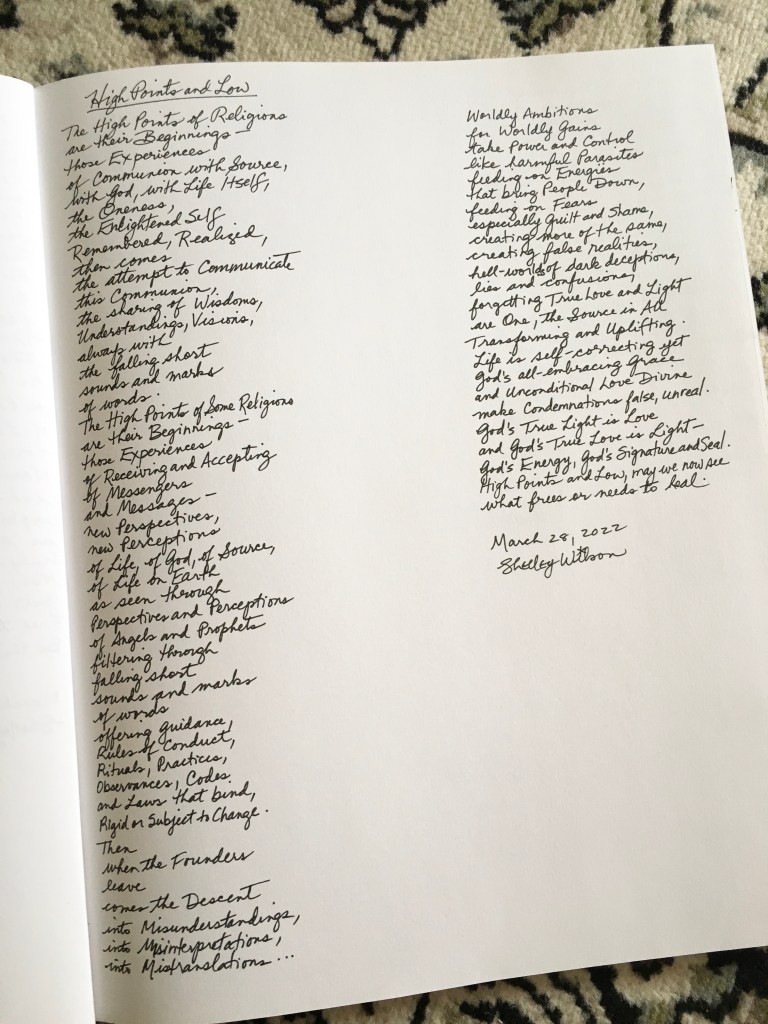 High Points and Low
The High Points of Religions
are their Beginnings —
those Experiences
of Communion with Source,
with God, with Life Itself,
the Oneness,
the Enlightened Self
Remembered, Realized,
then comes
the attempt to Communicate
this Communion,
the sharing of Wisdoms,
Understandings, Visions,
always with
the falling short
sounds and marks
of words.
The High Points of Some Religions
are their Beginnings —
those Experiences
of Receiving and Accepting
of Messengers
and Messages —
new Perspectives,
new Perceptions
of Life, of God, of Source,
of Life on Earth
as seen through
Perspectives and Perceptions
of Angels and Prophets
filtering through
falling short
sounds and marks
of words
offering guidance,
Rules of Conduct,
Rituals, Practices,
Observances, Codes
and Laws that bind,
Rigid or Subject to Change.
Then
when the Founders
leave
comes the Descent
into Misunderstandings,
into Misinterpretations,
into Mistranslations...
Worldly Ambitions
for Worldly Gains
take Power and Control
like harmful Parasites
feeding on Energies
that bring People Down,
feeding on Fears
especially Guilt and Shame,
creating more of the same,
creating false realities,
hell-worlds of dark deceptions,
lies and confusions,
forgetting True Love and Light
are One, the Source in All
Transforming and Uplifting.
Life is self-correcting yet
God's all-embracing Grace
and Unconditional Love Divine
make Condemnations false, unreal.
God's True Light is Love
and God's True Love is Light —
God's Energy, God's Signature and Seal.
High Points and Low, may we now see
what frees or needs to heal.
March 28, 2022
Shelley Wilson